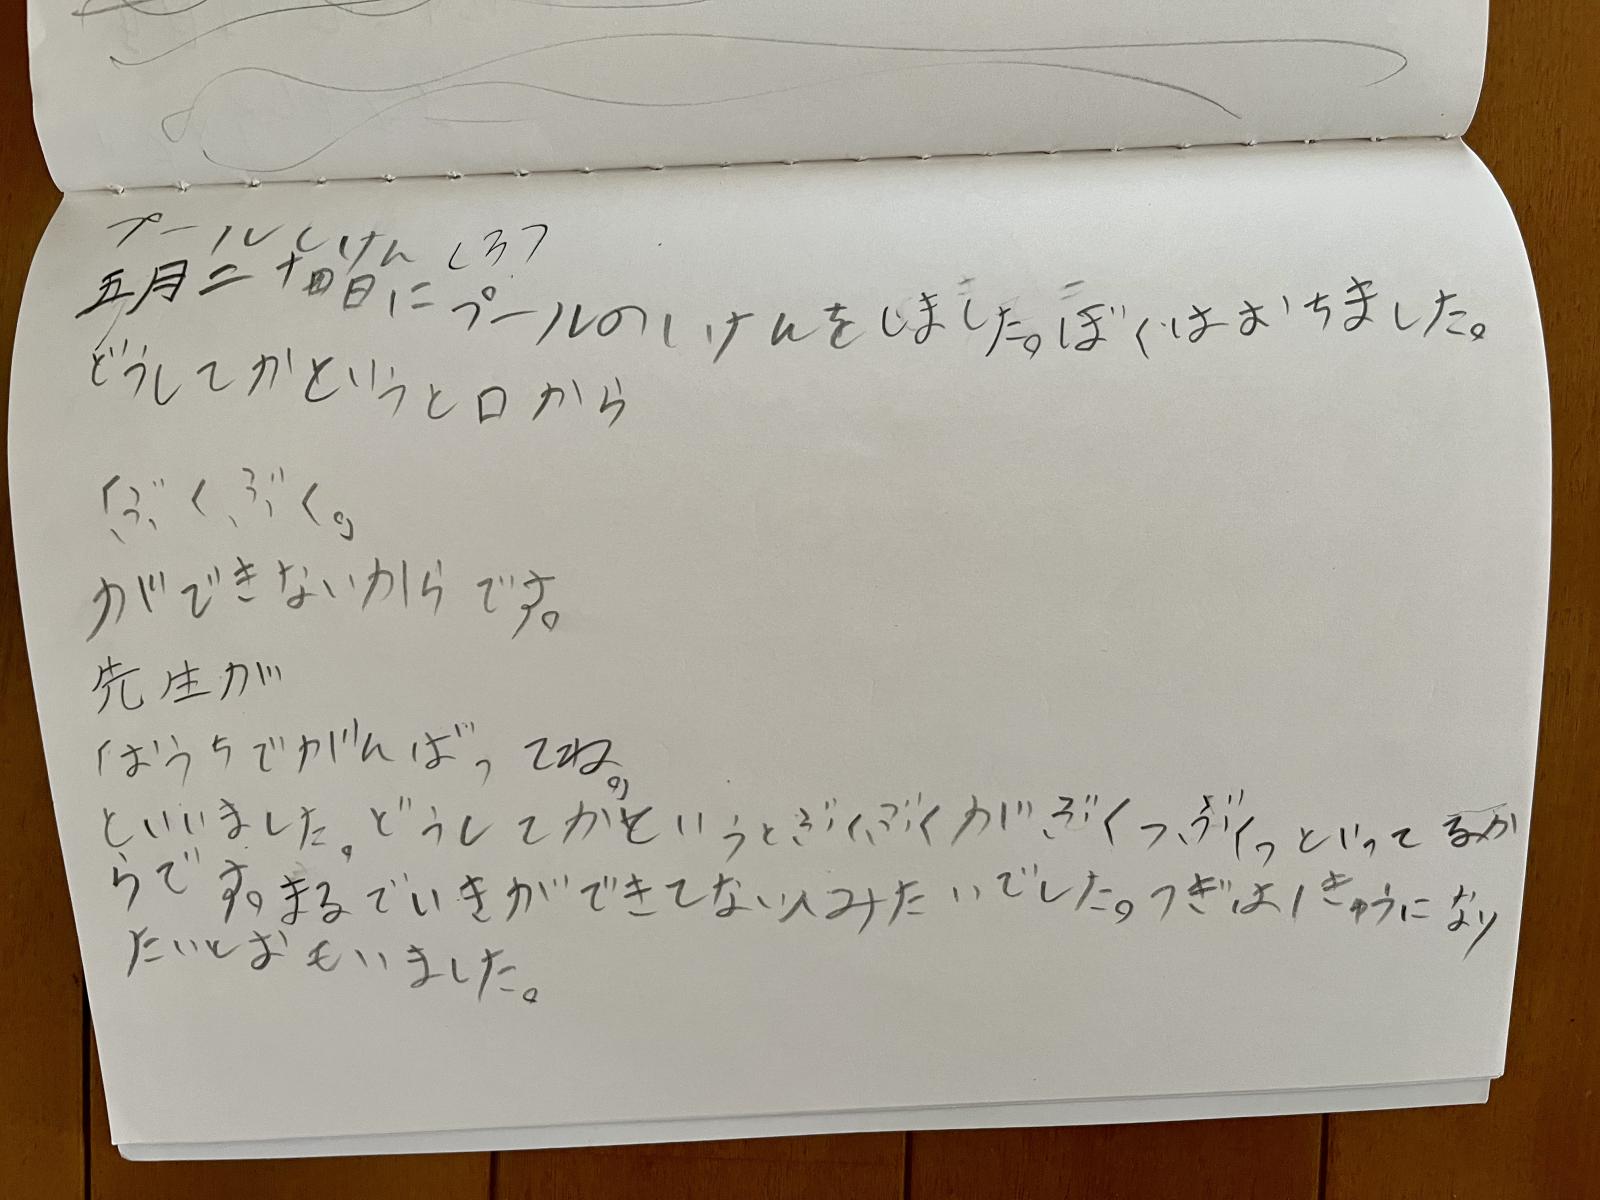 プールしけん しろう
五月二十四日にプールのしけんをしました。ぼくはおちました。
どうしてかというと口から
「ぶくぶく。」
ができないからです。
先生が
「おうちでがんばってね。」
といいました。どうしてかというとぶくぶくがぶくっぶくっといってるか
らです。まるでいきができてない人みたいでした。つぎは1きゅうになり
たいとおもいました。